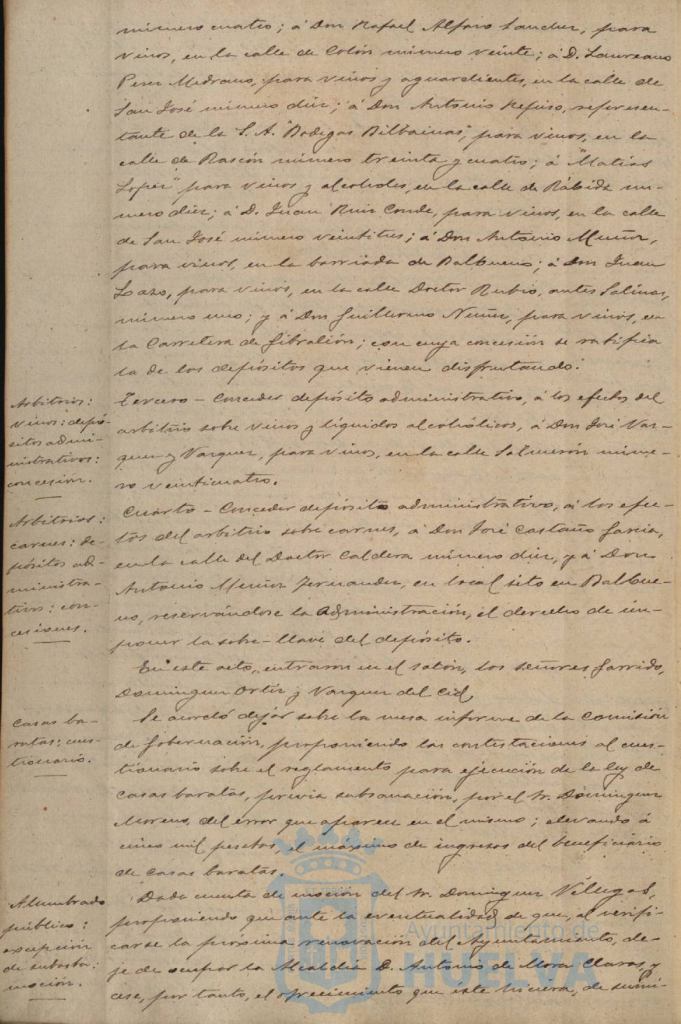 número cuatro; á Don Rafael Alfaro Sanchez, para
vinos, en la calle de Colón número veinte; á D. Laureano
Perez Medrano, para vinos y aguardientes, en la calle de
San José número diez; á Don Antonio Refojo, represen-
tante de la S. A. "Bodegas Bilbainas", para vinos, en la
calle de Rascón número treinta y cuatro; á "Matías
Lopez" para vinos y alcoholes, en la calle de Rábida nú-
mero diez; á D. Juan Ruiz Conde, para vinos, en la calle
de San José número veintitres; á Don Antonio Muñoz,
para vinos, en la barriada de Balbueno; á Don Juan
Lazo, para vinos, en la calle Doctor Rubio, antes Salinas,
número uno; y á Don Guillermo Nuñez, para vinos, en
la Carretera de Gibraleón; con cuya concesión se ratifica
la de los depósitos que vienen disfrutando.
Arbitrios:
vinos: depó-
sitos admi-
nistrativos:
concesión.
Tercero - Conceder depósito administrativo, á los efectos del
arbitrio sobre vinos y líquidos alcohólicos, á Don José Vaz-
quez y Vazquez, para vinos, en la calle Salmerón núme-
ro veinticuatro.
Arbitrios:
carnes: de-
pósitos ad-
ministra-
tivos: con-
cesiones.
Cuarto - Conceder depósito administrativo, á los efec-
tos del arbitrio sobre carnes, á Don José Castaño Garcia,
en la calle del Doctor Caldera número diez, y á Don
Antonio Muñoz Fernandez, en local sito en Balbue-
no, reservándose la Administración, el derecho de im-
poner la sobre-llave del depósito.
En este acto, entraron en el salón, los señores Garrido,
Dominguez Ortiz y Vazquez del Cid,
Casas ba-
ratas: cues-
tionario.
Se acordó dejar sobre la mesa informe de la Comisión
de Gobernación, proponiendo las contestaciones al cues-
tionario sobre el reglamento para ejecución de la ley de
casas baratas, previa subsanación, por el Sr. Dominguez
Moreno, del error que aparece en el mismo; elevando á
cinco mil pesetas, el máximo de ingresos del beneficiario
de casas baratas.
Alumbrado
público:
excepción
de subasta:
moción.
Dada cuenta de moción del Sr. Dominguez Villegas,
proponiendo que ante la eventualidad de que, al verifi-
carse la próxima renovación del Ayuntamiento, de-
je de ocupar la Alcaldía D. Antonio de Mora Claros, y
cese, por tanto, el ofrecimiento que este hiciera, de sumi-
Ayuntamiento de
HUELVA